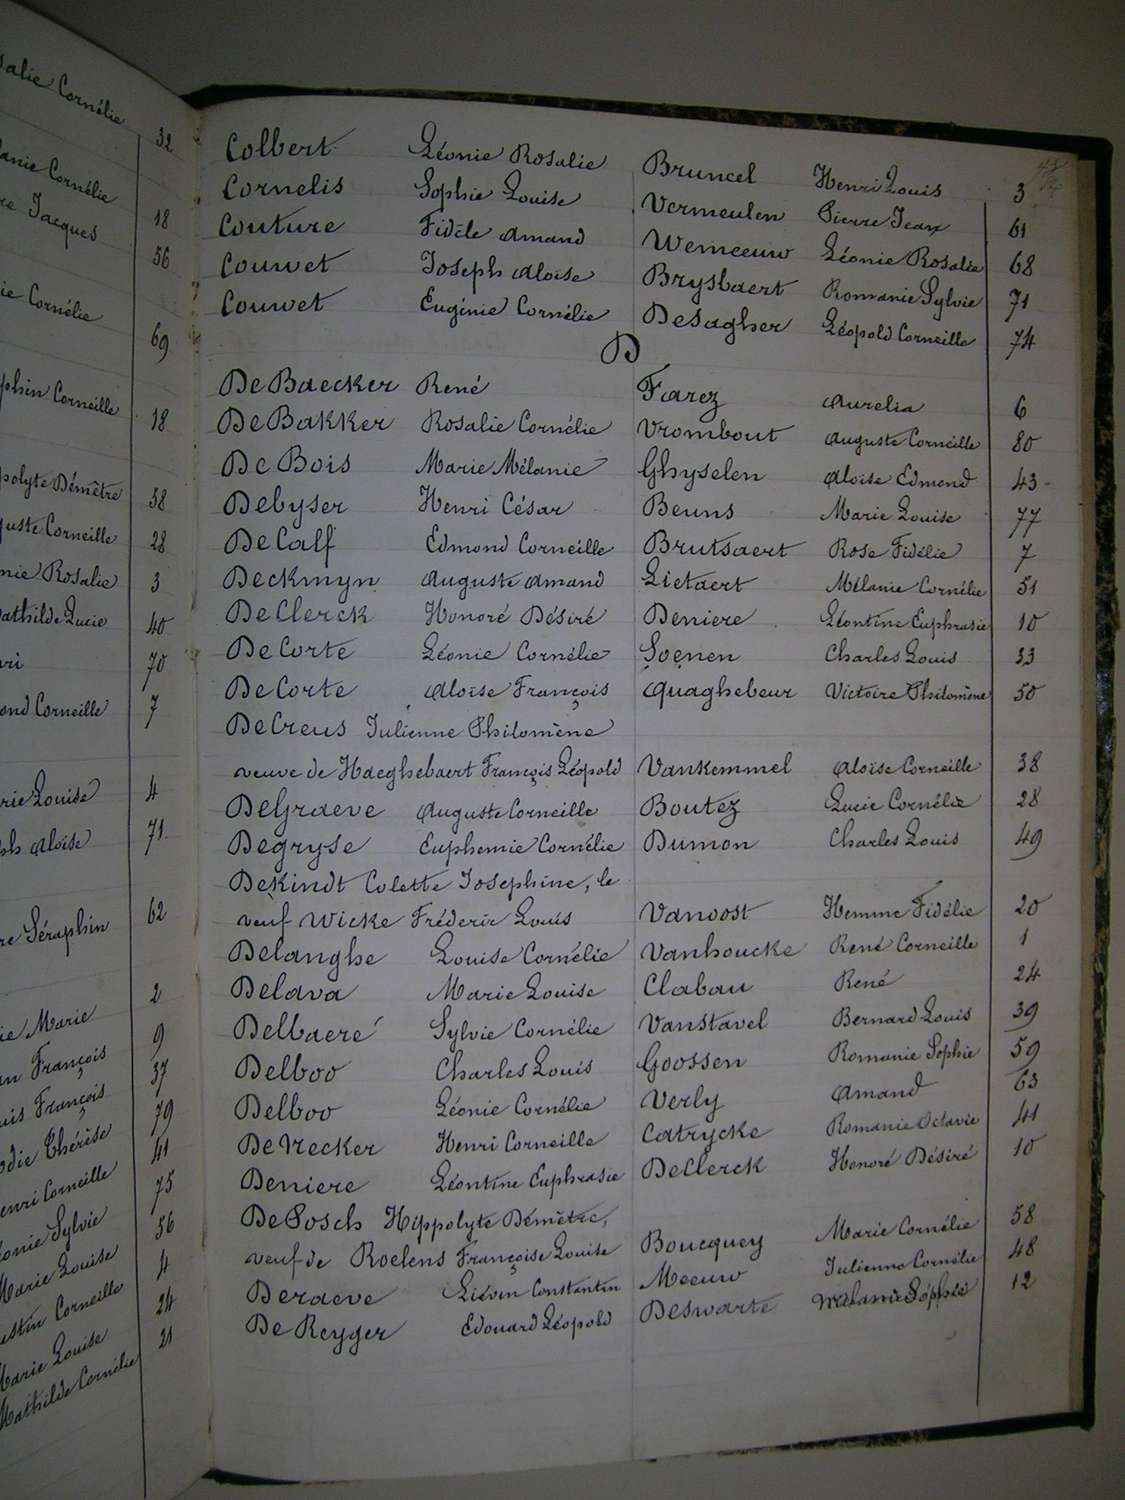 salie Cornélie 32
lanie Cornélie
re Jacques 18
56
ie Cornélie
69
phin Corneille 18
polyte Démètre 58
guste Corneille 28
nie Rosalie 3
athilde Lucie 40
ri 70
ond Corneille 7
rie Louise 4
ph Aloïse 71
62
re Séraphin
2
ie Marie 9
an François 37
uis François 79
odie Thérèse 41
enri Corneille 75
onie Sylvie 56
Marie Louise 4
ustin Corneille 24
Marie Louise 21
Mathilde Cornélie
Colbert Léonie Rosalie Bruneel Henri Louis 3
Cornelis Sophie Louise Vermeulen Pierre Jean 61
Couture Fidèle Amand Wemeeuw Léonie Rosalie 68
Couwet Joseph Aloïse Brysbaert Romanie Sylvie 71
Couwet Eugénie Cornélie DeSagher Léopold Corneille 74
D
DeBaecker René Farez Aurelia 6
DeBakker Rosalie Cornélie Vrombout Auguste Corneille 80
De Bois Marie Mélanie Ghyselen Aloïse Edmond 43
Debyser Henri César Beuns Marie Louise 77
DeCalf Edmond Corneille Brutsaert Rose Fidélie 7
Deckmyn Auguste Amand Lietaert Mélanie Cornélie 51
DeClerck Honoré Désiré Deniere Léontine Euphrasie 10
DeCorte Léonie Cornélie Soenen Charles Louis 33
DeCorte Aloïse François Quaghebeur Victoire Philomène 50
DeCreus Julienne Philomène
veuve de Haeghebaert François Léopold Vankemmel Aloïse Corneille 38
DeGraeve Auguste Corneille Boutez Lucie Cornélie 28
Degryse Euphemie Cornélie Dumon Charles Louis 49
Dekindt Colette Josephine, le
veuf Wicke Fréderic Louis Vanoost Hemme Fidélie 20
Delanghe Louise Cornélie Vanhoucke René Corneille 1
Delava Marie Louise Clabau René 24
Delbaeré Sylvie Cornélie Vanstavel Bernard Louis 39
Delboo Charles Louis Goossen Romanie Sophie 59
Delboo Léonie Cornélie Verly Amand 63
DeNecker Henri Corneille Catrycke Romanie Octavie 41
Deniere Léontine Euphrasie DeClerck Honoré Désiré 10
DePosch Hippolyte Démètre,
veuf de Roelens Françoise Louise Boucquey Marie Cornélie 58
Deraeve Liévin Constantin Meeuw Julienne Cornélie 48
De Reyger Edouard Léopold Deswarte Mélanie Sophie 12